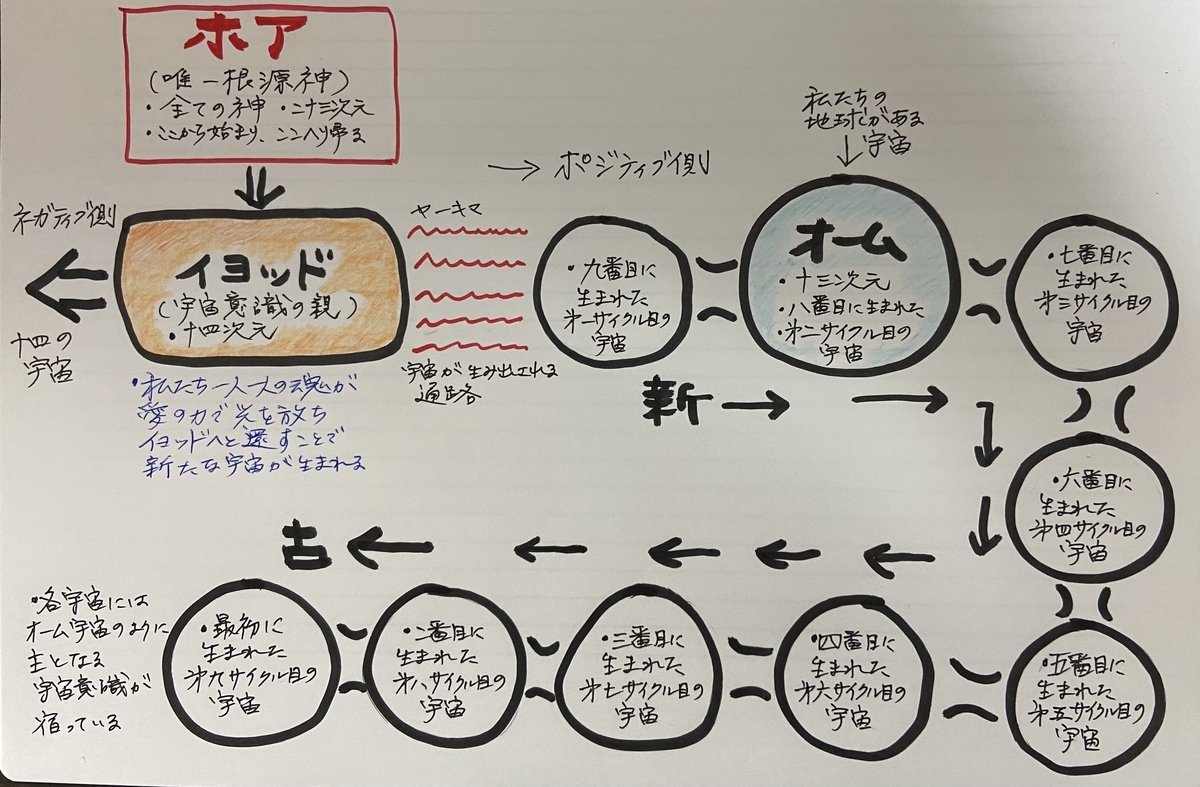 ホア
(唯一根源神)
・全ての神 ・二十三次元
・ここから始まり、ここへり帰る
ネガティブ側
十四の
宇宙
イヨッド
(宇宙意識の親)
・十四次元
・私たち一人一人の魂が
愛の力で光を放ち
イヨッドへと還すことで
新たな宇宙が生まれる
ヤーキマ
宇宙が生み出される
通路
→ ポジティブ側
・九番目に
生まれた
第一サイクル目の
宇宙
私たちの
地球がある
宇宙
オーム
・十三次元
・八番目に生まれた
・第二サイクル目の
宇宙
・七番目に
生まれた
第三サイクル目の
宇宙
新
・六番目に
生まれた
第四サイクル目の
宇宙
・五番目に
生まれた
第五サイクル目の
宇宙
・四番目に
生まれた
第六サイクル目の
宇宙
・三番目に
生まれた
第七サイクル目の
宇宙
・二番目に
生まれた
第八サイクル目の
宇宙
・最初に
生まれた
第九サイクル目の
宇宙
古
・各宇宙には
オーム宇宙のように
主となる
宇宙意識が
宿っている